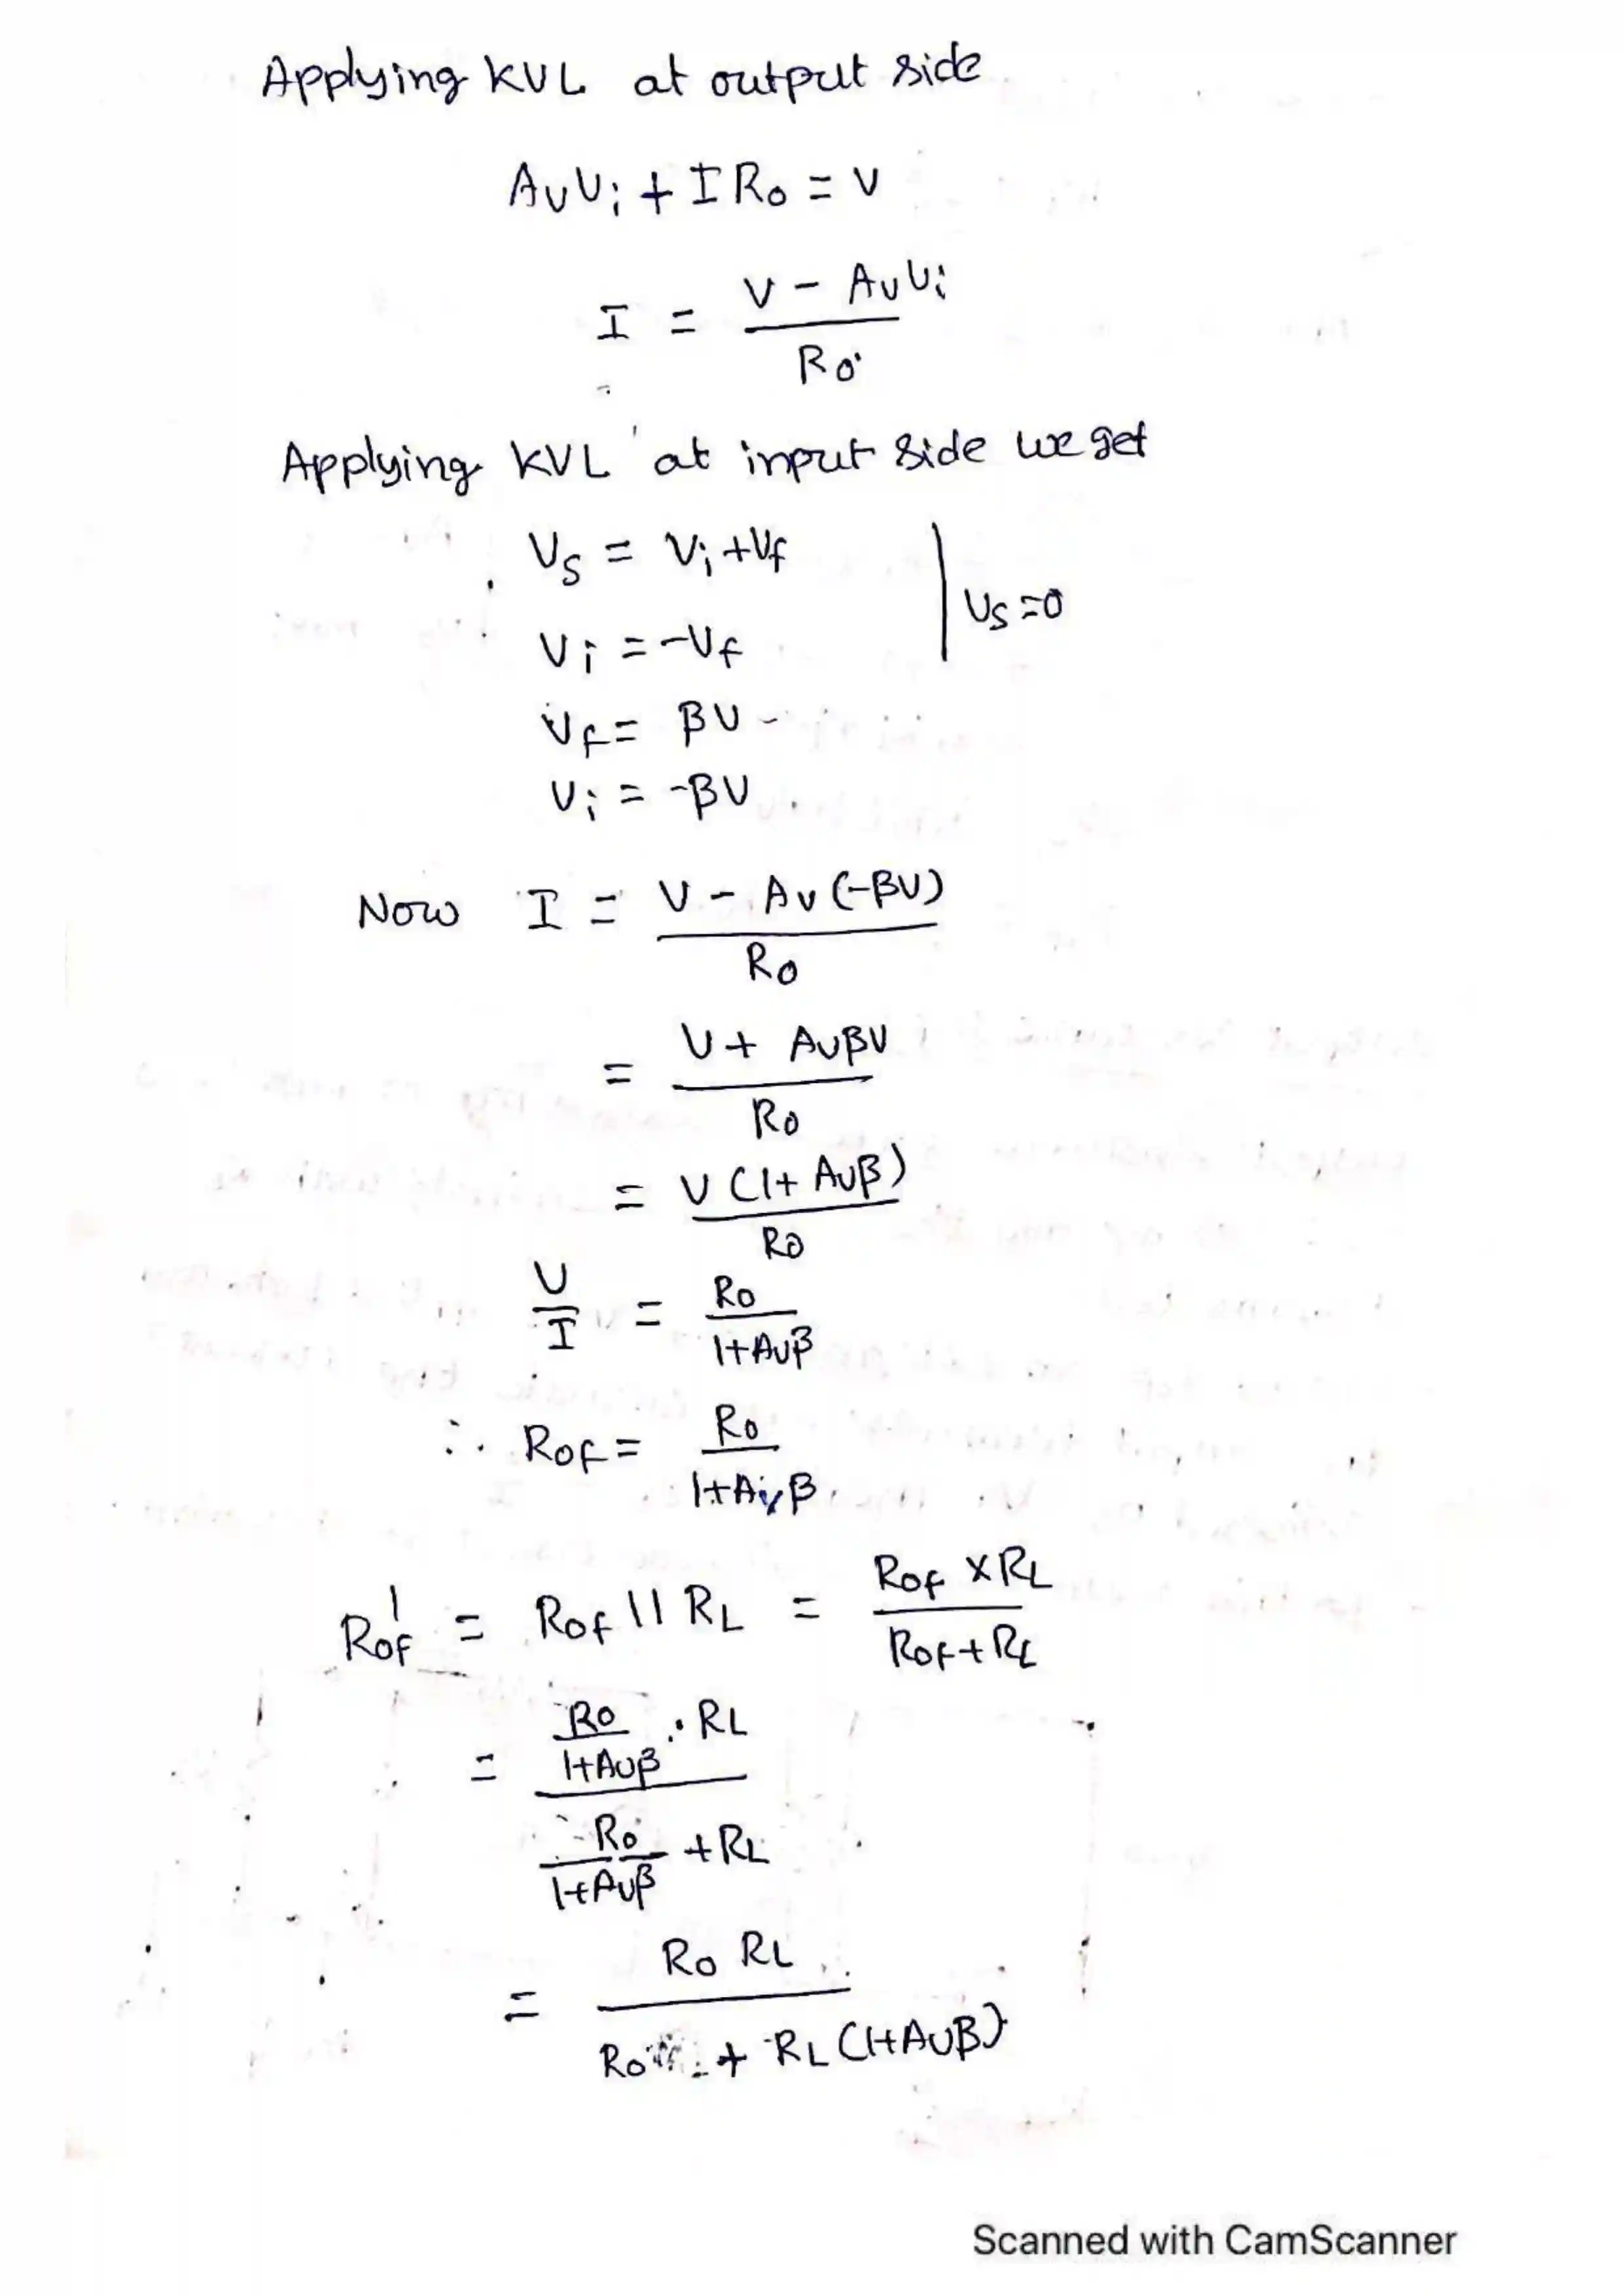 Applying KVL at output side
AvVi + IRo = V
I = V - AvVi / Ro
Applying KVL at input side we get
Vs = Vi + Vf | Vs = 0
Vi = -Vf
Vf = βV
Vi = -βV
Now I = V - Av(-βV) / Ro
= V + AvβV / Ro
= V(1 + Avβ) / Ro
V / I = Ro / 1 + Avβ
∴ Rof = Ro / 1 + Avβ
Rof' = Rof || RL = Rof × RL / Rof + RL
= Ro / 1 + Avβ . RL / Ro / 1 + Avβ + RL
= Ro RL / Ro + RL(1 + Avβ)
Scanned with CamScanner